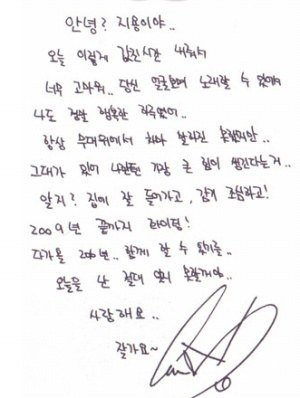 안녕? 지용이야..
오늘 이렇게 값진시간 내줘서
너무 고마워.. 당신 얼굴보며 노래할 수 있어서
나도 정말 행복한 하루였어..
항상 무대위에서 차마 말하진 못했지만..
그대가 있어 나한텐 가장 큰 힘이 생긴다는거..
알지? 집에 잘 들어가고, 감기 조심하고!
2009년 끝까지 화이팅!
다가올 20년.. 함께 할 수 있기를..
오늘을 난 절대 잊지 못할거야..
사랑해요..
잘가요~